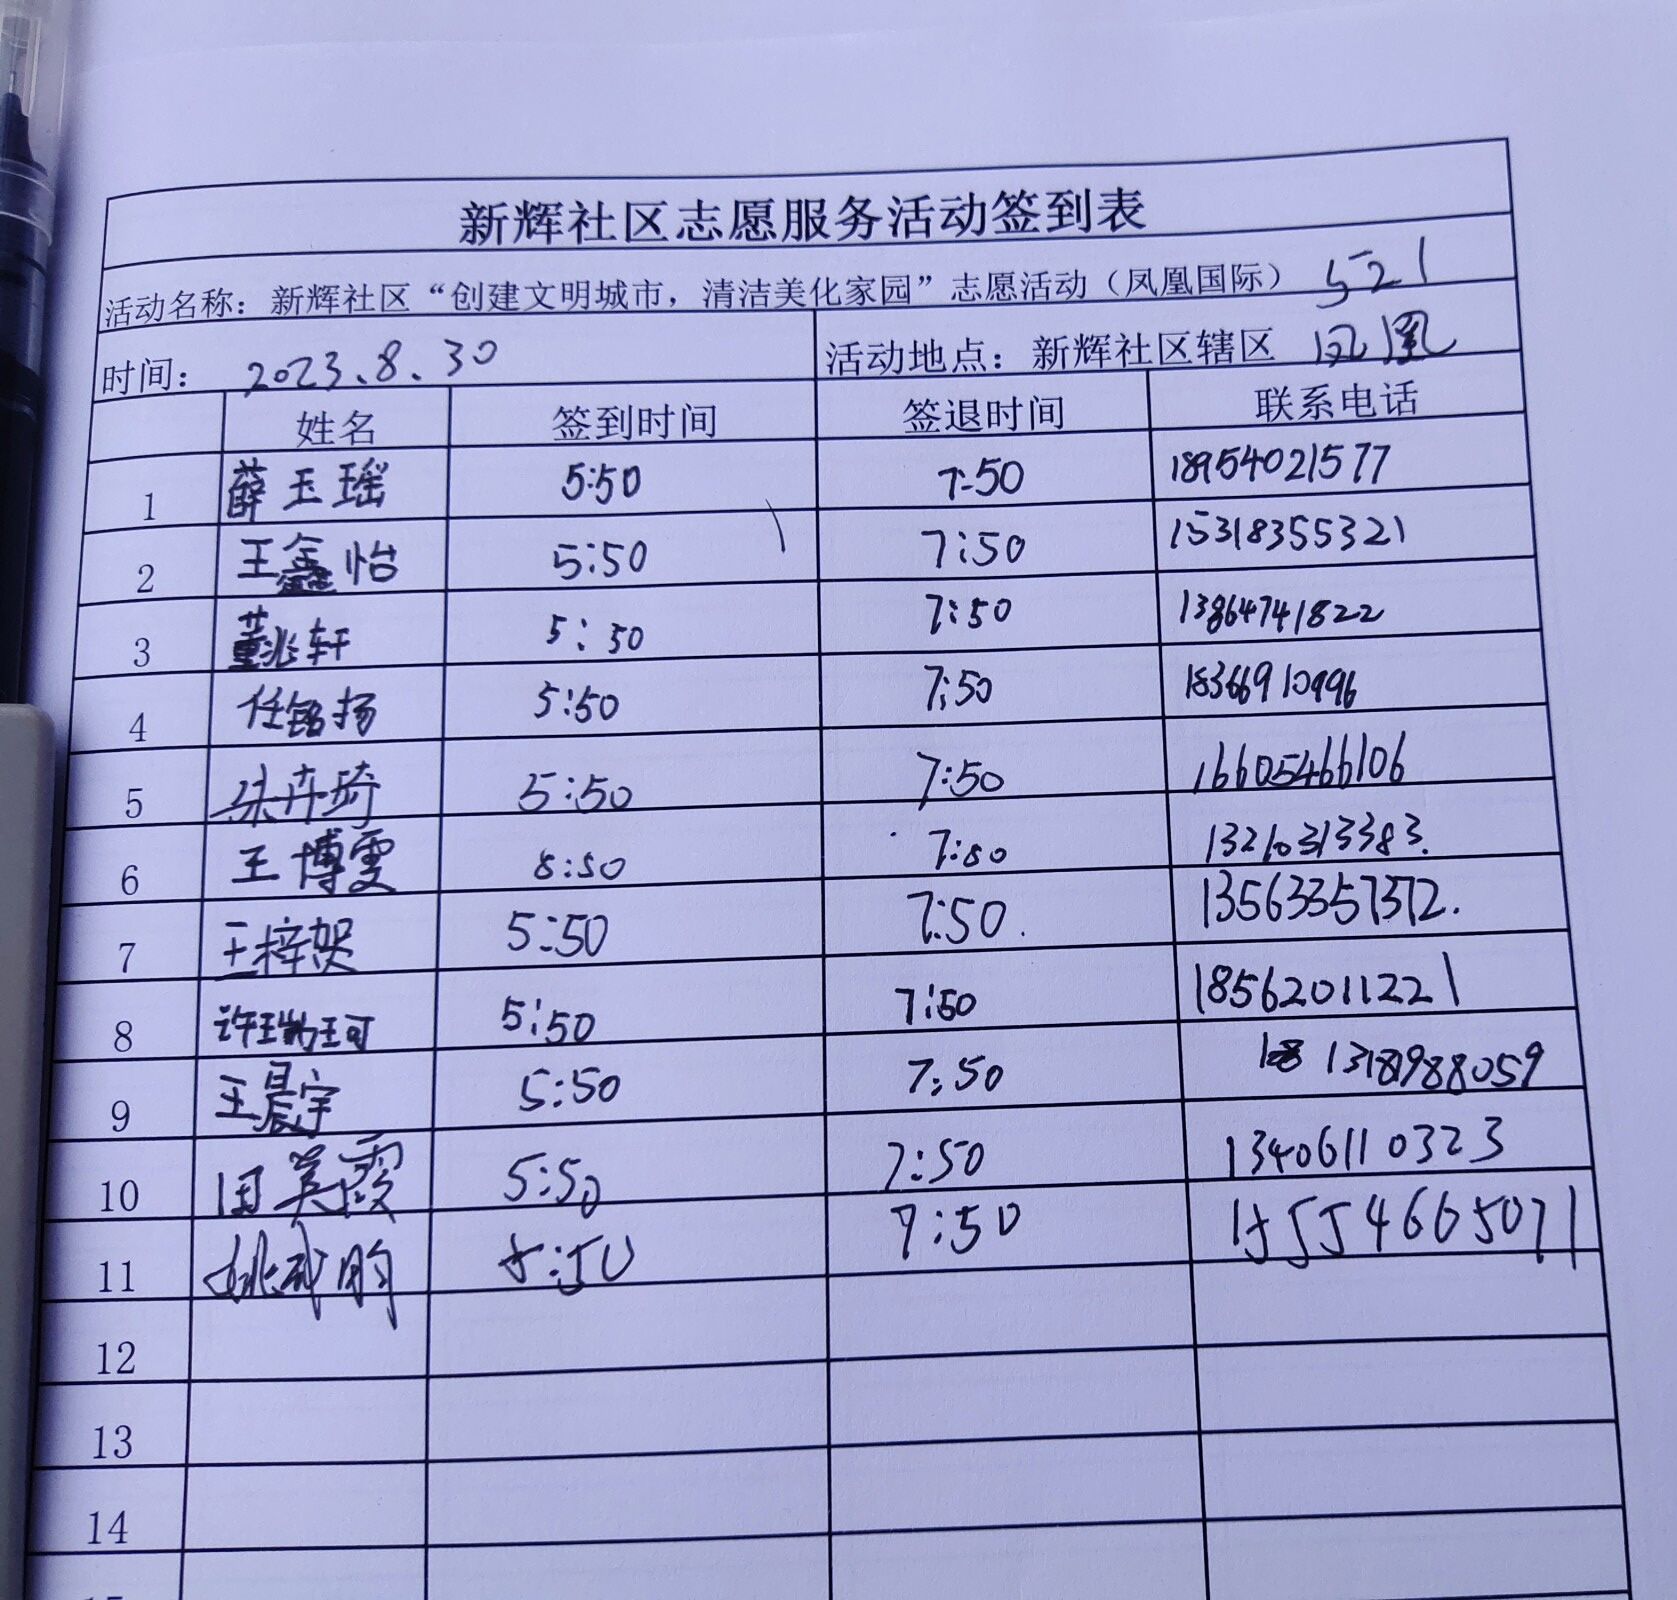 新辉社区志愿服务活动签到表
活动名称：新辉社区“创建文明城市，清洁美化家园”志愿活动（凤凰国际） 521
时间： 2023.8.30 活动地点：新辉社区辖区 凤凰
姓名 签到时间 签退时间 联系电话
1 薛玉瑶 5:50 7:50 18954021577
2 王鑫怡 5:50 7:50 15318355321
3 董兆轩 5:50 7:50 13864741822
4 任铭扬 5:50 7:50 18366910996
5 朱卉琦 5:50 7:50 16605466106
6 王博雯 5:50 7:50 13210313383.
7 王梓贺 5:50 7:50. 13563357372.
8 许瑞珂 5:50 7:50 18562011221
9 王晨宇 5:50 7:50 13181988059
10 田英霞 5:50 7:50 13406110323
11 5:50 7:50 15554665071
12
13
14